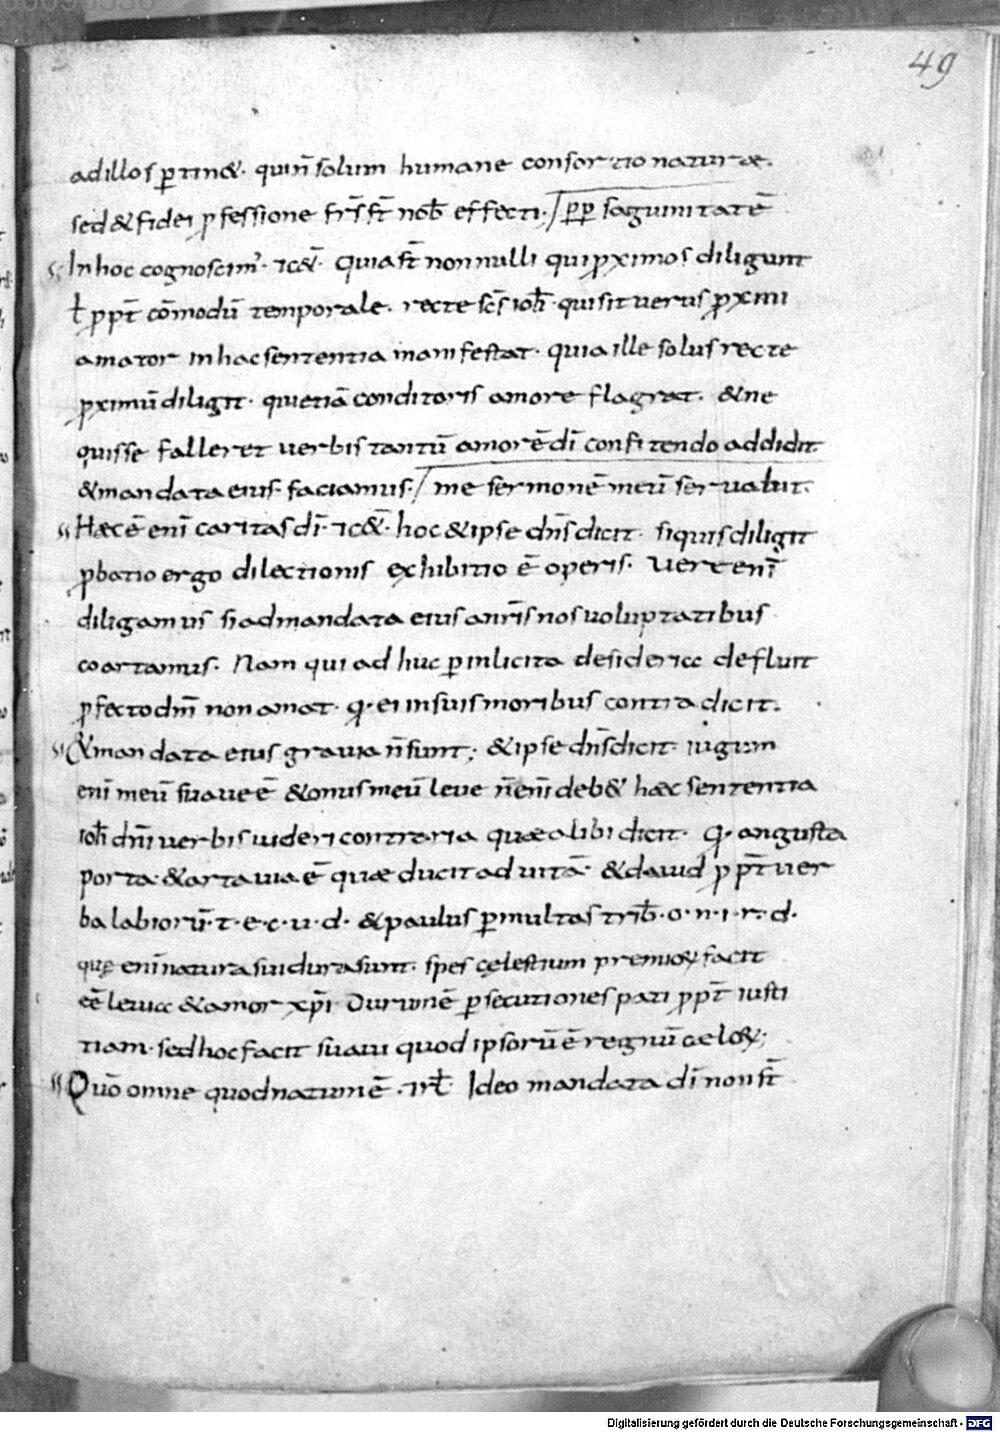 49
ad illos ꝑtin&. quin̄ solum humane consortio naturæ.
sed & fidei ꝓfessione fr̄s st̄ nob̄ effecti./ ꝓp sagunitatē
In hoc cognoscim᾿. &c̄. Quia st̄ nonnulli qui ꝓximos diligunt
ł ꝓpt̄ cōmodū temporale. recte sc̄s ioh̄ qui sit uerus ꝓximi
amator in hac sententia manifestat. quia ille solus recte
ꝓximū diligit. qui etiā conditoris amore flagrat. & ne
quisse falleret uerbis tantū amorē dī confitendo addidit.
& mandata eius faciamus./ me sermonē meū seruabit.
Hæc ē enī caritas dī. &c̄. hoc & ipse dn̄s dicit. siquis diligit
ꝓbatio ergo dilectionis exhibitio ē operis. Vere enī
diligamus si ad mandata eius a nr̄is nos uoluptatibus
coartamus. Nam qui ad huc ꝑ inlicita desideria defluit
ꝓfecto dm̄ non amat. q. ei in suis moribus contradicit.
& mandata eius grauia n̄ sunt; & ipse dn̄s dicit. iugum
enī meū suaue ē & onus meū leue n̄ enī deb& hæc sententia
ioh̄ dn̄i uerbis uideri contraria quæ alibi dicit. q. angusta
porta. & arta uia ē quæ ducit ad uitā. & dauid ꝓpt̄ uer
ba labiorū. t. e. c. u. d. & paulus ꝑ multas trib̄. o. n. i. r. d.
quę enī natura sui dura sunt. spes cęlestium premioꝝ facit
eē leuia & amor xp̄i. Durum ē ꝑsecutiones pati ꝓpt̄ iusti
tiam. sed hoc facit suaui quod ipsorū ē regnū celoꝝ;
Quō omne quod natum ē. Ideo mandata dī non st̄
Digitalisierung gefördert durch die Deutsche Forschungsgemeinschaft - DFG